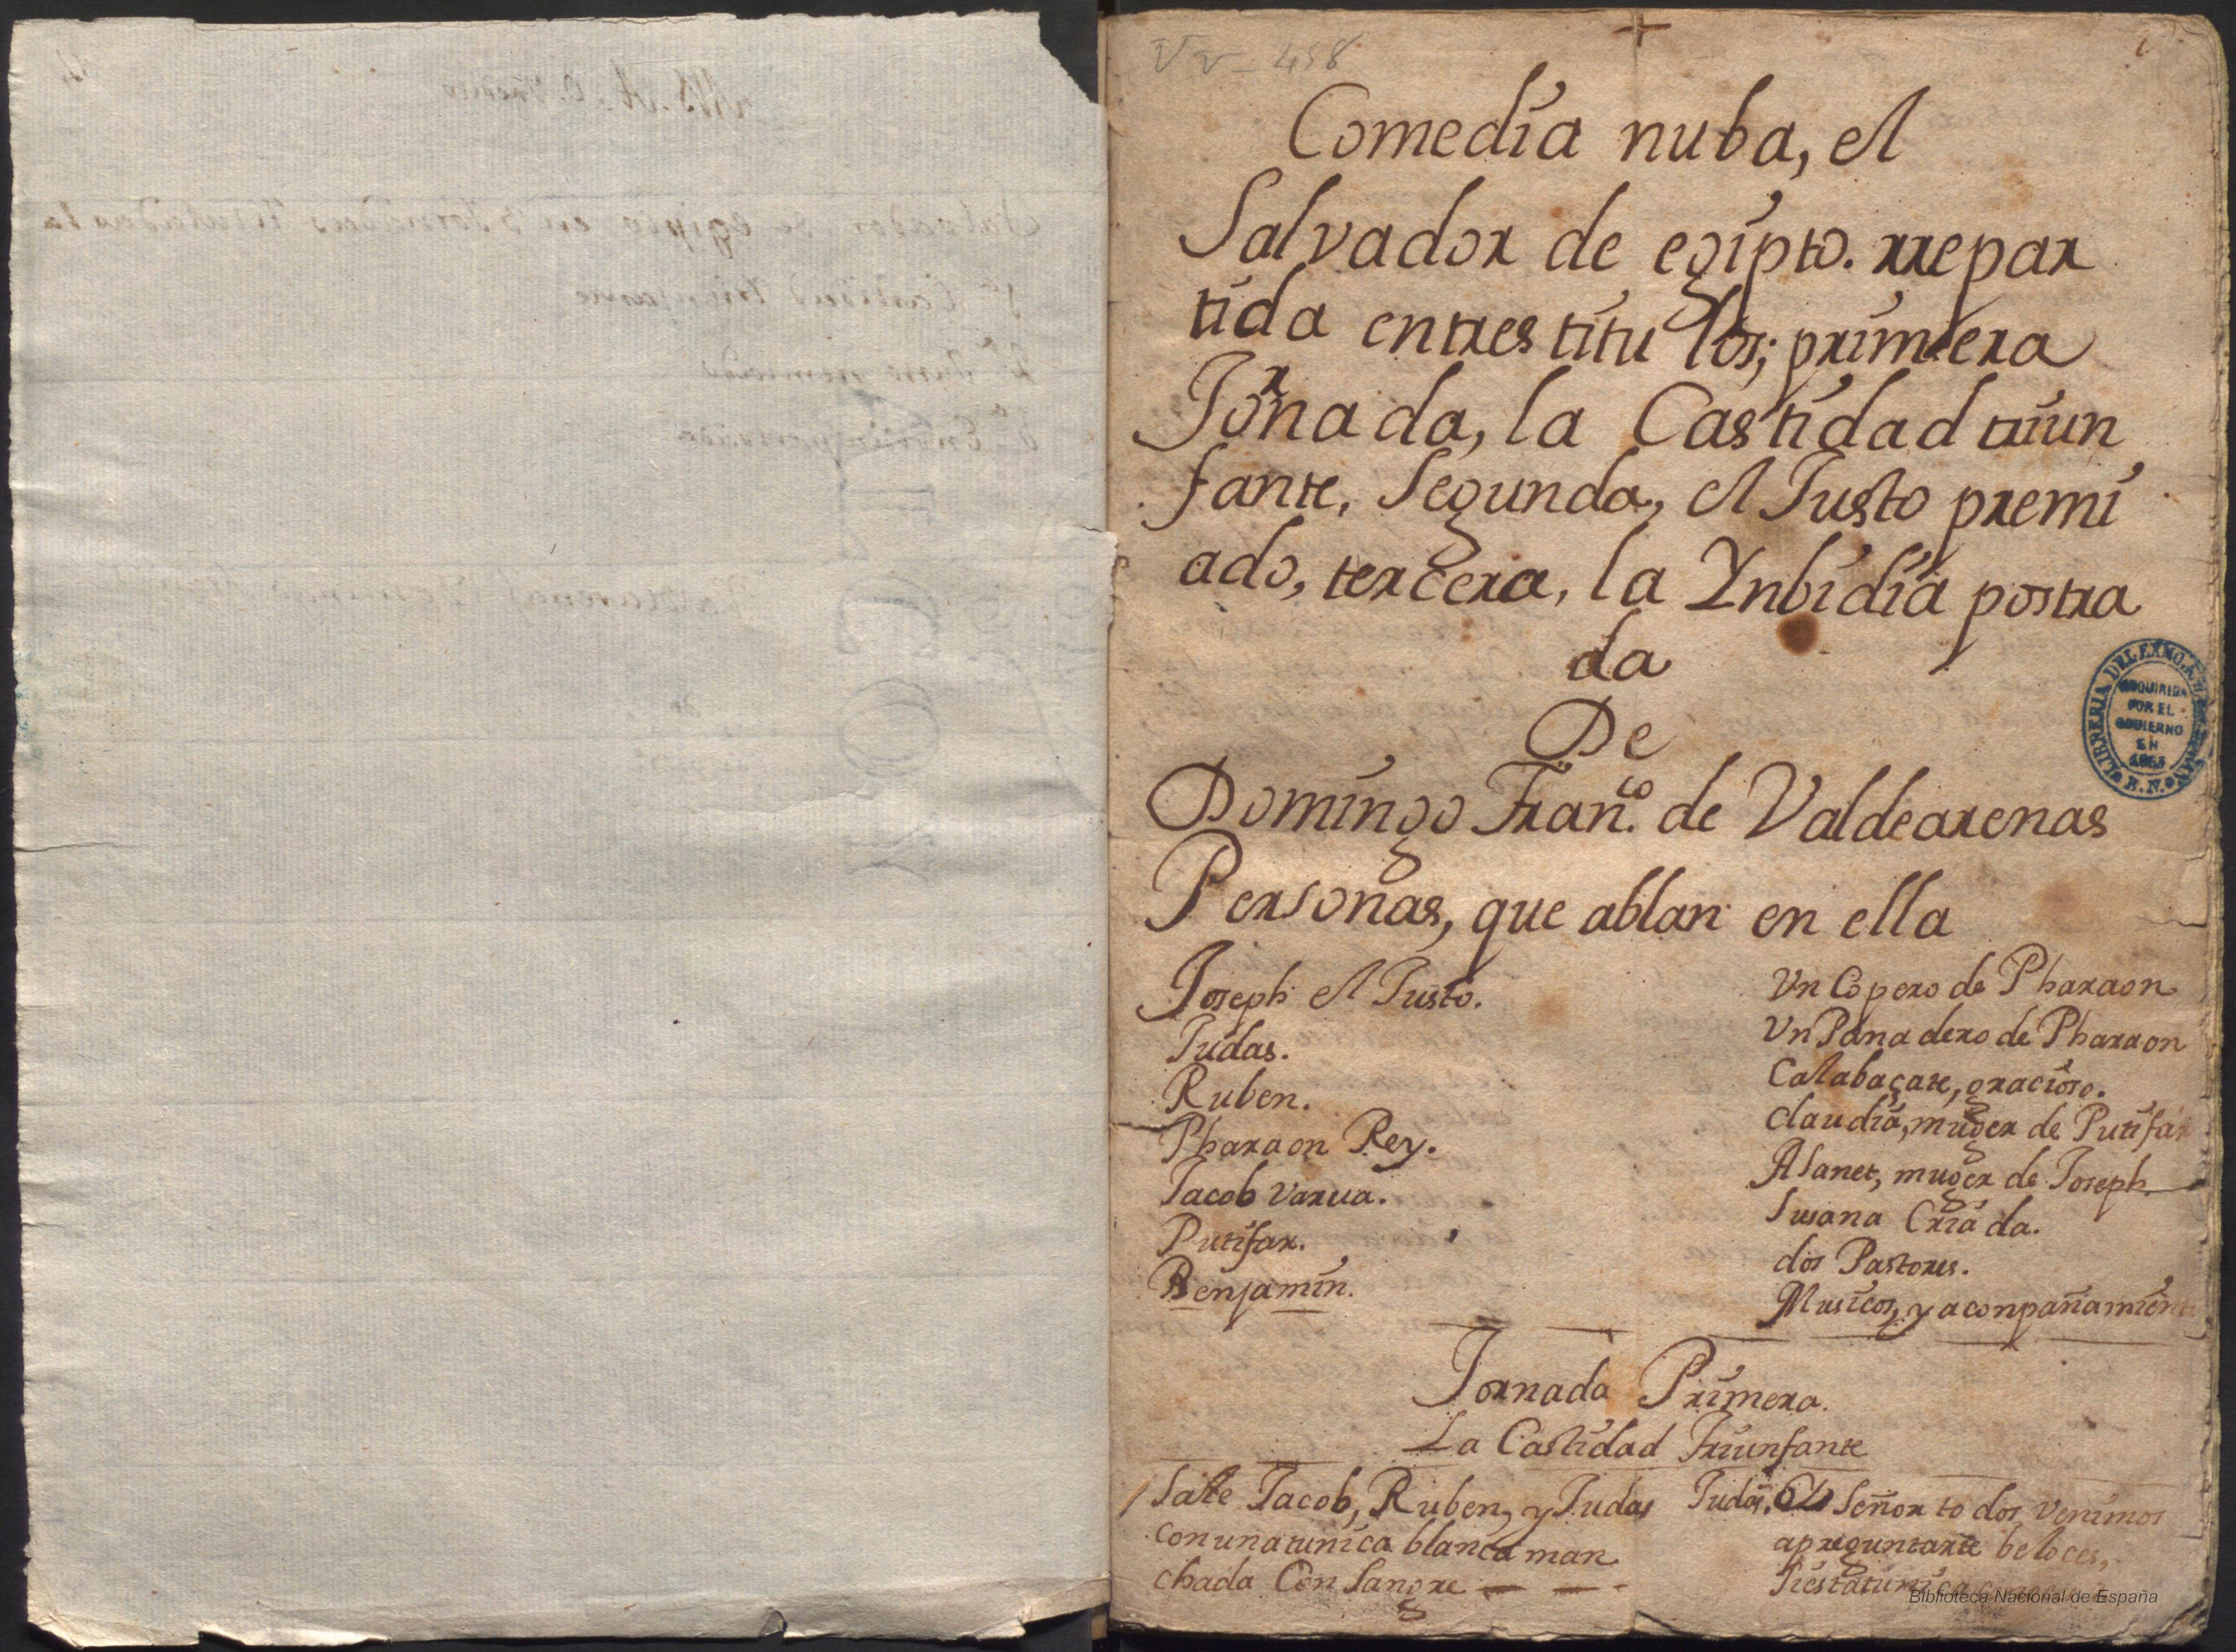 Vv-458
Comedia nuba, el
Salvador de egipto. rrepar
tida entres titulos; primera
Jornada, la Castidad triun
fante, Segunda, el Justo premi
ado, tercera, la Ynbidia postra
da
De
Domingo Fran.co de Valdearenas
Personas, que ablan en ella
Joseph el Justo.
Judas.
Ruben.
Pharaon Rey.
Jacob varua.
Putifar.
Benjamin.
Vn Copero de Pharaon
Vn Panadero de Pharaon
Calabaçate, gracioso.
Claudia, muger de Putifar
Asanet, muger de Joseph.
Susana Criada.
dos Pastores.
Musicos, y aconpañamien
LIBRERIA DEL EXMO.
ADQUIRIDA
POR EL
GOBIERNO
EN
B.N.
Jornada Primera.
La Castidad Triunfante
Sale Jacob, Ruben, y Judas
con una tunica blanca man
chada Con Sangre
Judas. Señor todos venimos
apreguntarte beloces,
siestatunica
Biblioteca Nacional de España